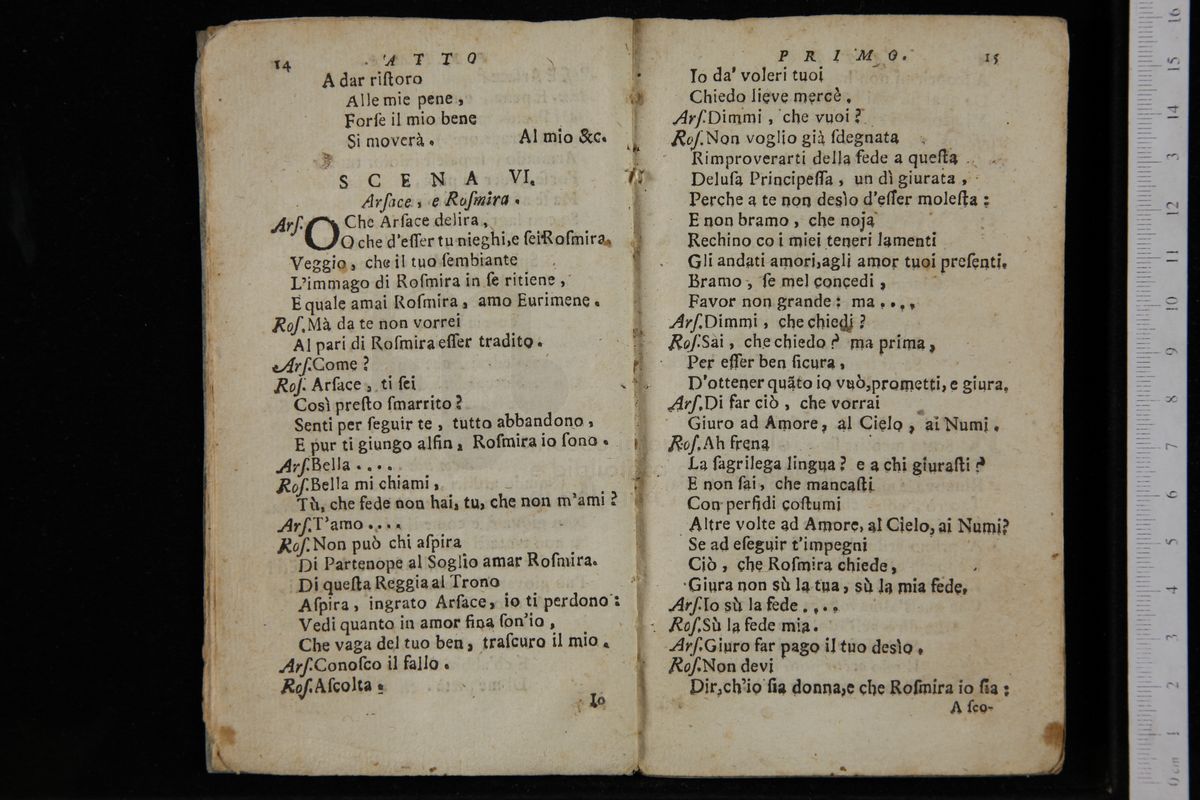 14 ATTO
A dar riſtoro
Alle mie pene,
Forſe il mio bene
Si moverà. Al mio &c.
SCENA VI.
Arſace, e Roſmira.
Arſ. O Che Arſace delira,
O che d'eſſer tu nieghi, e ſei Roſmira.
Veggio, che il tuo ſembiante
L'immago di Roſmira in ſe ritiene,
E quale amai Roſmira, amo Eurimene.
Roſ. Mà da te non vorrei
Al pari di Roſmira eſſer tradito.
Arſ. Come?
Roſ. Arſace, ti ſei
Così preſto ſmarrito?
Senti per ſeguir te, tutto abbandono,
E pur ti giungo alfin, Roſmira io ſono.
Arſ. Bella....
Roſ. Bella mi chiami,
Tù, che fede non hai, tu, che non m'ami?
Arſ. T'amo....
Roſ. Non può chi aſpira
Di Partenope al Soglio amar Roſmira.
Di queſta Reggia al Trono
Aſpira, ingrato Arſace, io ti perdono:
Vedi quanto in amor fina ſon'io,
Che vaga del tuo ben, traſcuro il mio.
Arſ. Conoſco il fallo.
Roſ. Aſcolta.
Io
PRIMO. 15
Io da' voleri tuoi
Chiedo lieve mercè.
Arſ. Dimmi, che vuoi?
Roſ. Non voglio già ſdegnata
Rimproverarti della fede a queſta
Deluſa Principeſſa, un dì giurata,
Perche a te non desìo d'eſſer moleſta:
E non bramo, che noja
Rechino co i miei teneri lamenti
Gli andati amori, agli amor tuoi preſenti.
Bramo, ſe mel concedi,
Favor non grande: ma....
Arſ. Dimmi, che chiedi?
Roſ. Sai, che chiedo? ma prima,
Per eſſer ben ſicura,
D'ottener quãto io vuò, prometti, e giura.
Arſ. Di far ciò, che vorrai
Giuro ad Amore, al Cielo, ai Numi.
Roſ. Ah frena
La ſagrilega lingua? e a chi giuraſti?
E non ſai, che mancaſti
Con perfidi coſtumi
Altre volte ad Amore, al Cielo, ai Numi?
Se ad eſeguir t'impegni
Ciò, che Roſmira chiede,
Giura non sù la tua, sù la mia fede.
Arſ. Io sù la fede....
Roſ. Sù la fede mia.
Arſ. Giuro far pago il tuo desìo.
Roſ. Non devi
Dir, ch'io ſia donna, e che Roſmira io ſia:
A ſco-